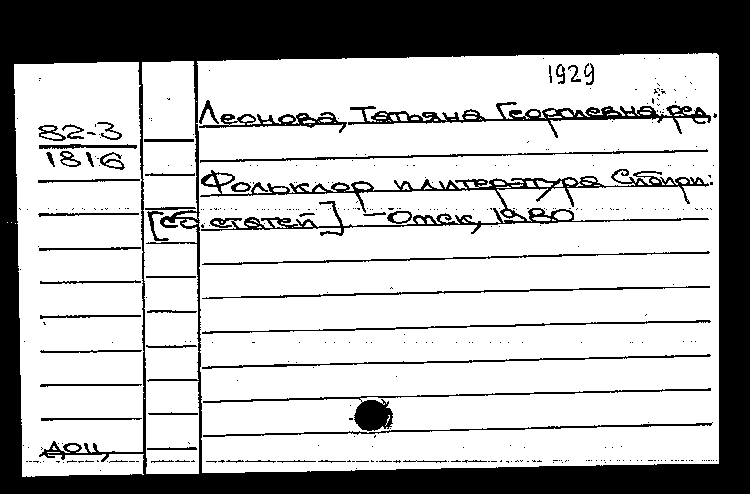 1929
Леонова, Татьяна Георгиевна, ред.
82-3
1816
Фольклор и литература Сибири:
[сб. статей] - Омск, 1980
доц,